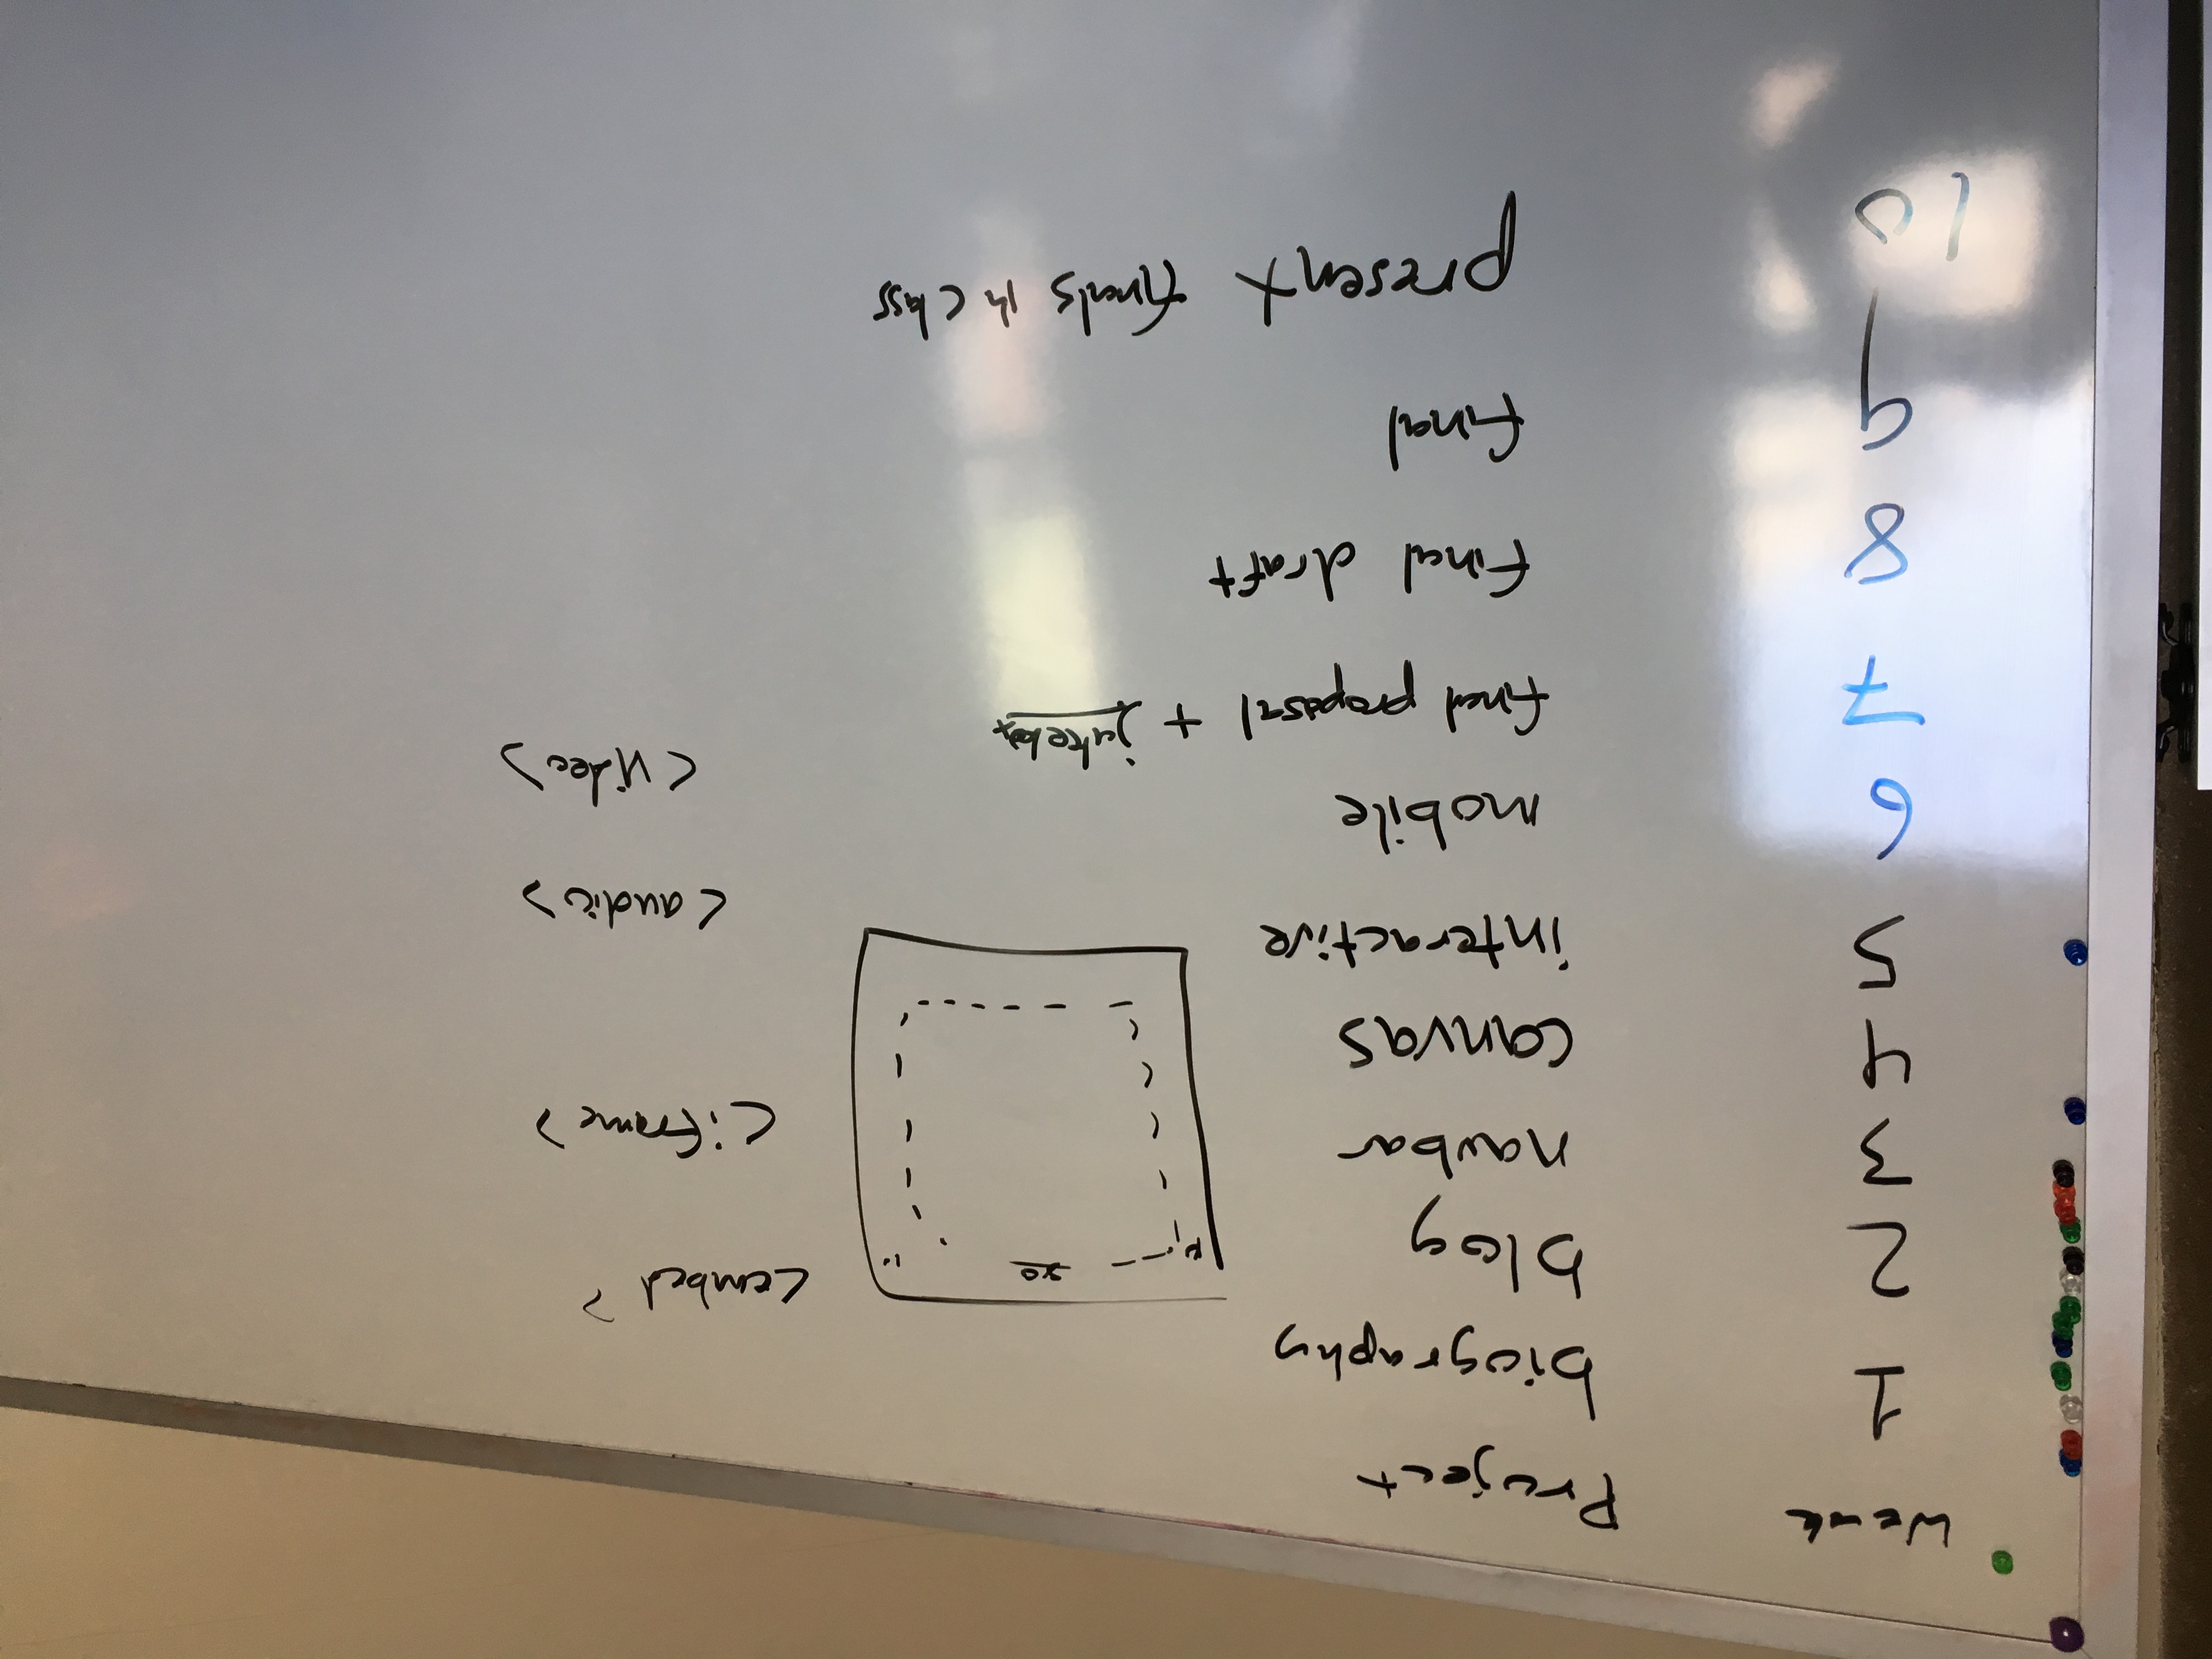 Week Project
1 biography
2 blog
3 navbar
4 canvas
5 interactive
6 mobile
7 final proposal + jukebox
8 final draft
9 final
10 present finals in class
10
<embed>
<iframe>
<audio>
<video>